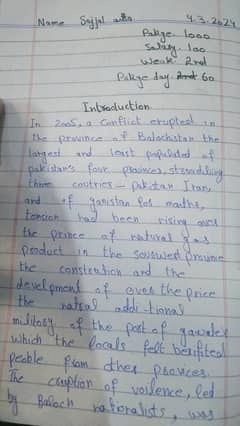 Name Sajjal 4.3.2024
Pakge. 1000
Salary. 100
Weak 2nd
Pakge day. 60
Introduction
In 2005, a Conflict erupted in
the province of Balochstan the
largest and least populated of
pakistan's four provinces, straddling
three coutries - pakitan Iran,
and of ganistan for maths,
tension had been rising over
the price of natural gas
product in the souswed proume
the constrution and the
development of over the price
the natral addi-tional
military of the port of gawader
which the locals felt benifited
peable from ther provices.
The cruption of voilence, led
by Baloch nationalists, was